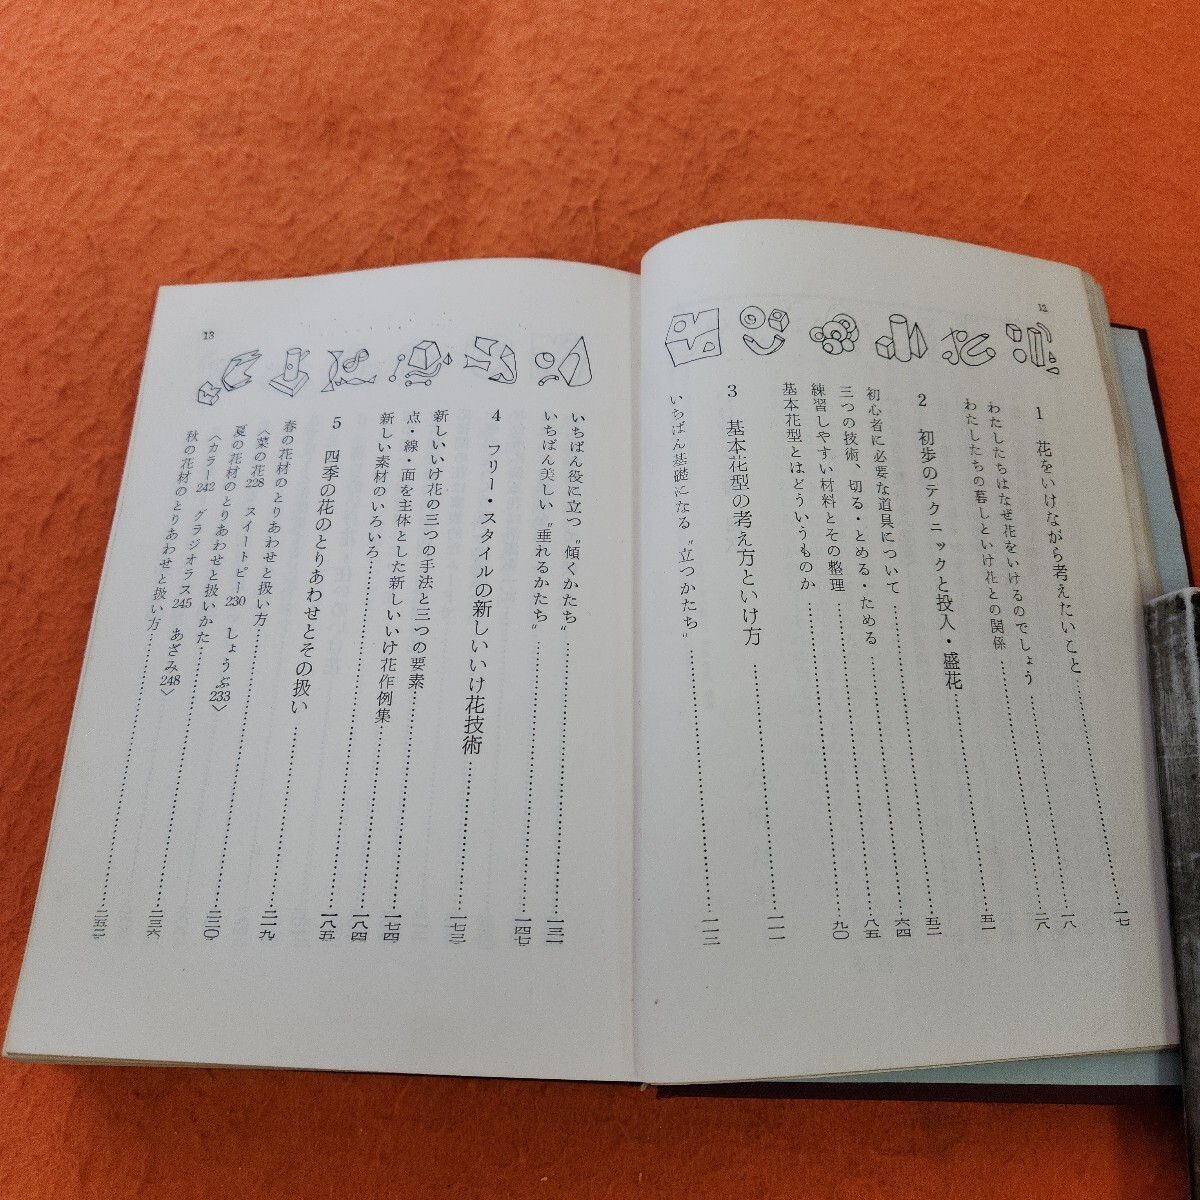 12
1 花をいけながら考えたいこと……一七
わたしたちはなぜ花をいけるのでしょう……一八
わたしたちの暮しといけ花との関係……二八
2 初歩のテクニックと投入・盛花……五一
初心者に必要な道具について……五二
三つの技術、切る・とめる・ためる……六四
練習しやすい材料とその整理……八五
基本花型とはどういうものか……九〇
3 基本花型の考え方といけ方……一一一
いちばん基礎になる〝立つかたち〟……一一二
13
いちばん役に立つ〝傾くかたち〟……一三一
いちばん美しい〝垂れるかたち〟……一四七
4 フリー・スタイルの新しいいけ花技術……一七三
新しいいけ花の三つの手法と三つの要素……一七四
点・線・面を主体とした新しいいけ花作例集……一八四
新しい素材のいろいろ……一八五
5 四季の花のとりあわせとその扱い……二一九
春の花材のとりあわせと扱い方……二二〇
〈菜の花228 スイートピー230 しょうぶ233〉
夏の花材のとりあわせと扱いかた……二三六
〈カラー242 グラジオラス245 あざみ248〉
秋の花材のとりあわせと扱い方……二五二